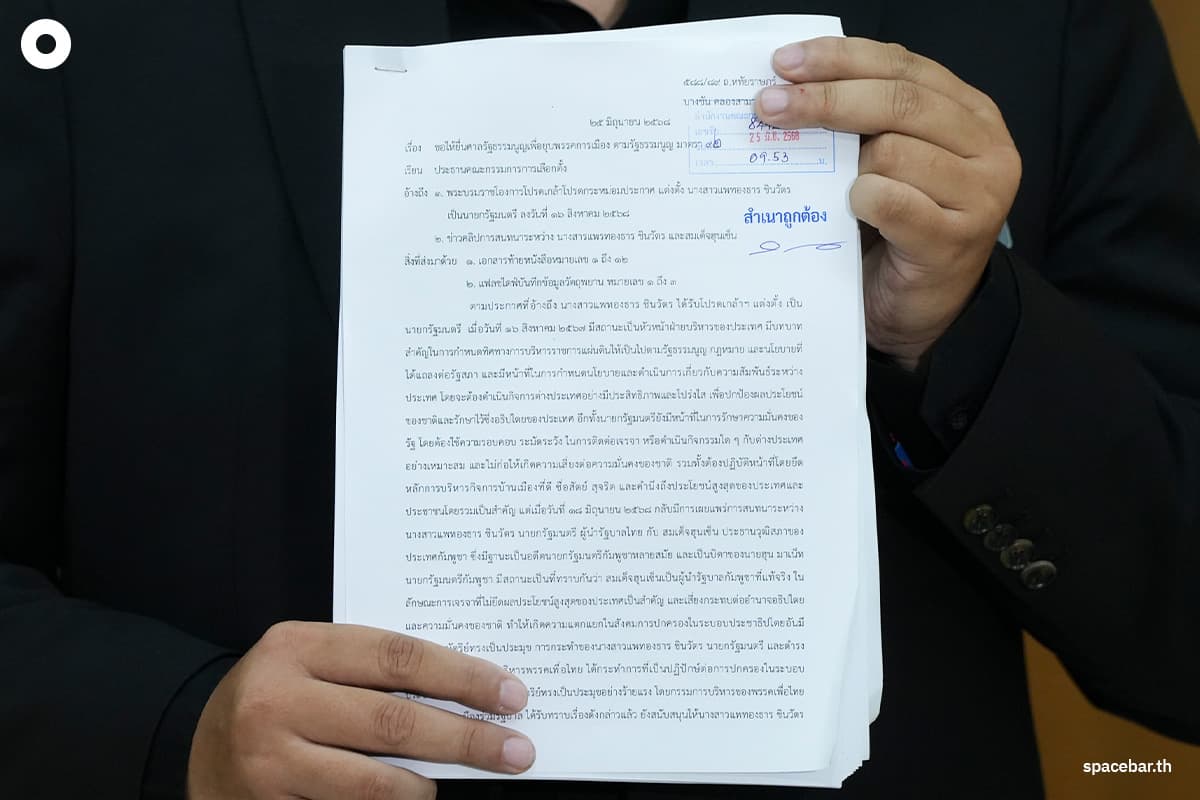 ๕๘๘/๘๙ ถ.หทัยราษฎร์
บางชัน คลองสามวา
สำนักงานคณะก
๒๕ มิถุนายน ๒๕๖๘
เลขรับ
25 มิ.ย. 2568
เวลา 09.53 น.
เรื่อง ขอให้ยื่นศาลรัฐธรรมนูญเพื่อยุบพรรคการเมือง ตามรัฐธรรมนูญ มาตรา ๙๒
เรียน ประธานคณะกรรมการการเลือกตั้ง
อ้างถึง ๑. พระบรมราชโองการโปรดเกล้าโปรดกระหม่อมประกาศ แต่งตั้ง นางสาวแพทองธาร ชินวัตร
เป็นนายกรัฐมนตรี ลงวันที่ ๑๖ สิงหาคม ๒๕๖๘
สำเนาถูกต้อง
๒. ข่าวคลิปการสนทนาระหว่าง นางสารแพรทองธาร ชินวัตร และสมเด็จฮุนเซ็น
สิ่งที่ส่งมาด้วย ๑. เอกสารท้ายหนังสือหมายเลข ๑ ถึง ๑๒
๒. แฟลชไดฟ์บันทึกข้อมูลวัตถุพยาน หมายเลข ๑ ถึง ๓
ตามประกาศที่อ้างถึง นางสาวแพทองธาร ชินวัตร ได้รับโปรดเกล้าฯ แต่งตั้ง เป็น
นายกรัฐมนตรี เมื่อวันที่ ๑๖ สิงหาคม ๒๕๖๗ มีสถานะเป็นหัวหน้าฝ่ายบริหารของประเทศ มีบทบาท
สำคัญในการกำหนดทิศทางการบริหารราชการแผ่นดินให้เป็นไปตามรัฐธรรมนูญ กฎหมาย และนโยบายที่
ได้แถลงต่อรัฐสภา และมีหน้าที่ในการกำหนดนโยบายและดำเนินการเกี่ยวกับความสัมพันธ์ระหว่าง
ประเทศ โดยจะต้องดำเนินกิจการต่างประเทศอย่างมีประสิทธิภาพและโปร่งใส เพื่อปกป้องผลประโยชน์
ของชาติและรักษาไว้ซึ่งอธิปไตยของประเทศ อีกทั้งนายกรัฐมนตรียังมีหน้าที่ในการรักษาความมั่นคงของ
รัฐ โดยต้องใช้ความรอบคอบ ระมัดระวัง ในการติดต่อเจรจา หรือดำเนินกิจกรรมใด ๆ กับต่างประเทศ
อย่างเหมาะสม และไม่ก่อให้เกิดความเสี่ยงต่อความมั่นคงของชาติ รวมทั้งต้องปฏิบัติหน้าที่โดยยึด
หลักการบริหารกิจการบ้านเมืองที่ดี ซื่อสัตย์ สุจริต และคำนึงถึงประโยชน์สูงสุดของประเทศและ
ประชาชนโดยรวมเป็นสำคัญ แต่เมื่อวันที่ ๑๘ มิถุนายน ๒๕๖๘ กลับมีการเผยแพร่การสนทนาระหว่าง
นางสาวแพทองธาร ชินวัตร นายกรัฐมนตรี ผู้นำรัฐบาลไทย กับ สมเด็จฮุนเซ็น ประธานวุฒิสภาของ
ประเทศกัมพูชา ซึ่งมีฐานะเป็นอดีตนายกรัฐมนตรีกัมพูชาหลายสมัย และเป็นบิดาของนายฮุน มาเน็ท
นายกรัฐมนตรีกัมพูชา มีสถานะเป็นที่ทราบกันว่า สมเด็จฮุนเซ็นเป็นผู้นำรัฐบาลกัมพูชาที่แท้จริง ใน
ลักษณะการเจรจาที่ไม่ยึดผลประโยชน์สูงสุดของประเทศเป็นสำคัญ และเสี่ยงกระทบต่ออำนาจอธิปไตย
และความมั่นคงของชาติ ทำให้เกิดความแตกแยกในสังคมการปกครองในระบอบประชาธิปไตยอันมี
ทรงเป็นประมุข การกระทำของนางสาวแพทองธาร ชินวัตร นายกรัฐมนตรี และดำรง
ริหารพรรคเพื่อไทย ได้กระทำการที่เป็นปฏิปักษ์ต่อการปกครองในระบอบ
ริย์ทรงเป็นประมุขอย่างร้ายแรง โดยกรรมการบริหารของพรรคเพื่อไทย
ได้รับทราบเรื่องดังกล่าวแล้ว ยังสนับสนุนให้นางสาวแพทองธาร ชินวัตร
spacebar.th